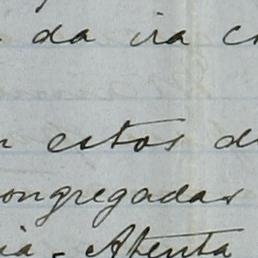 da ira
estos
ongregadas
ia. Atenta